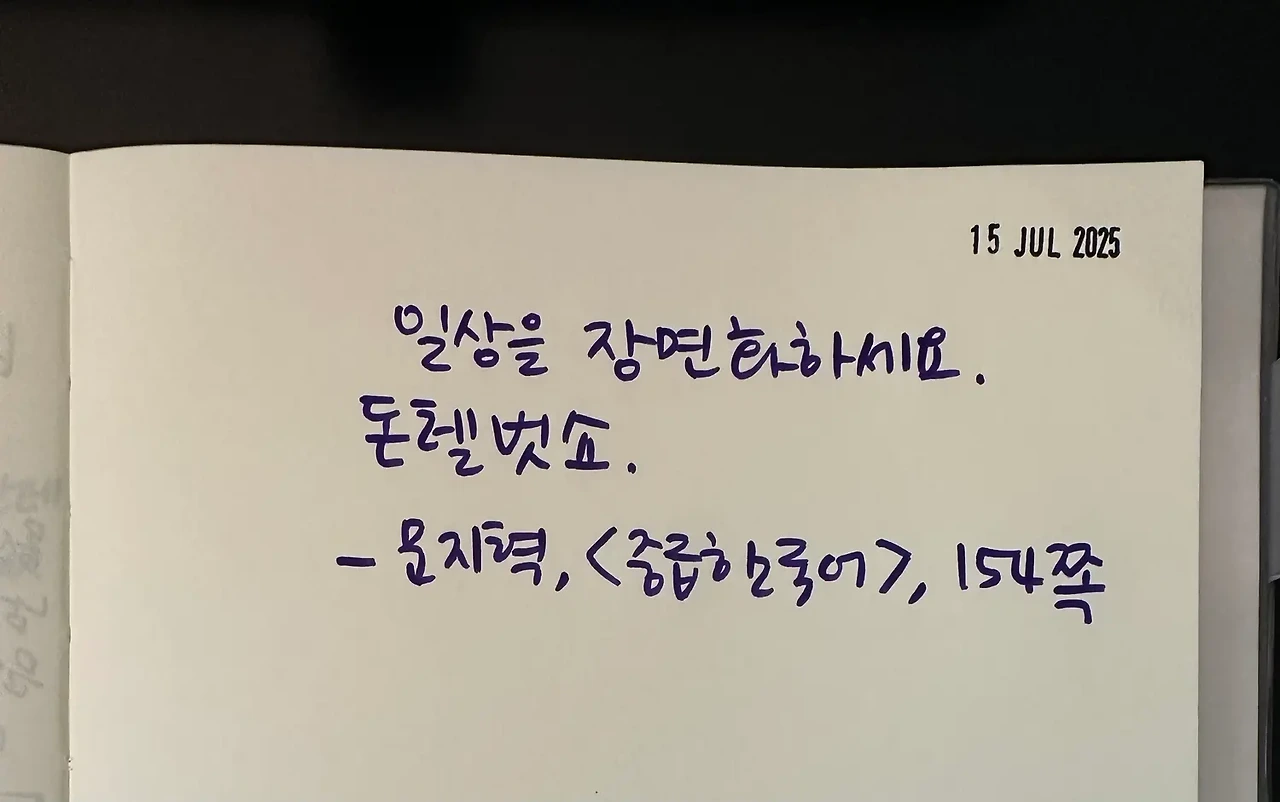 15 JUL 2025
일상을 장면화하세요.
돈텔벗쇼.
- 문지혁, <중급한국어>, 154쪽